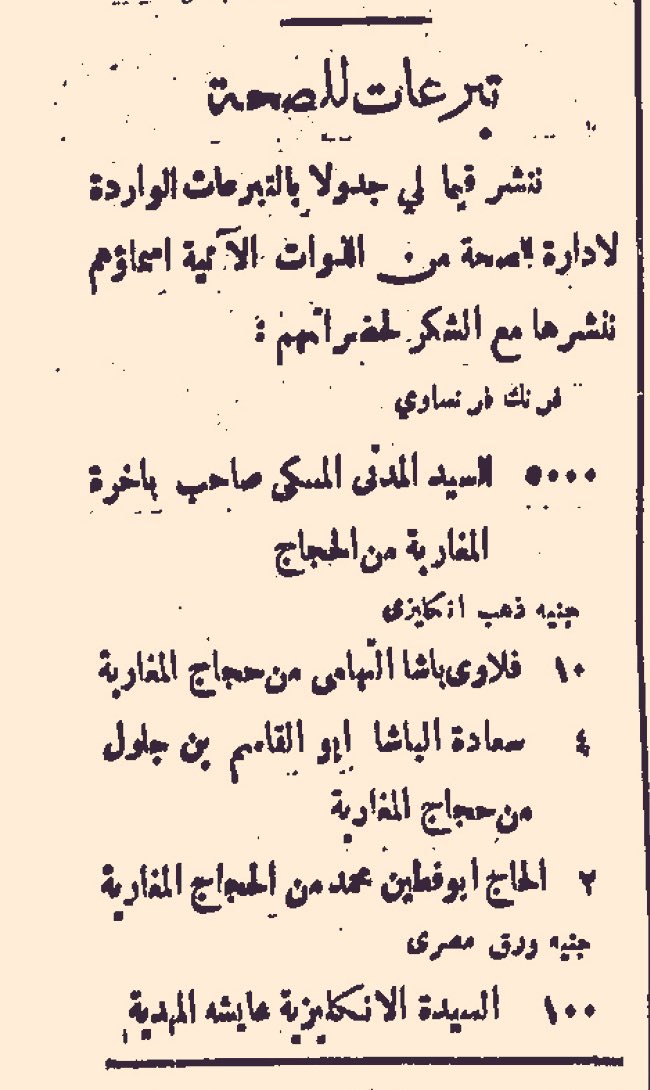 تبرعات للصحة
ننشر فيما لي جدولا بالتبرعات الواردة
لادارة الصحة من الذوات الآتية اسماؤهم
ننشرها مع الشكر لحضراتهم :
فرنك فرنساوي
٥٠٠٠ السيد المدنى المسكى صاحب باخرة
المغاربة من الحجاج
جنيه ذهب انكليزى
١٠ فلاوى باشا التهامى من حجاج المغاربة
٤ سعادة الباشا ابو القاسم بن جلول
من حجاج المغاربة
٢ الحاج ابو فطين محمد من الحجاج المغاربة
جنيه ورق مصرى
١٠٠ السيدة الانكليزية عايشه المهدية